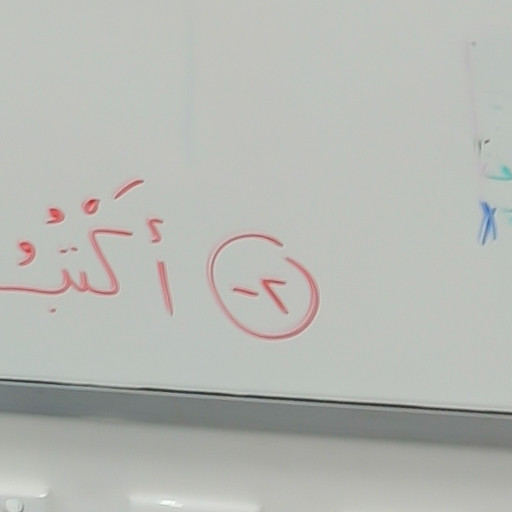 ٢- أَكْتُبُ